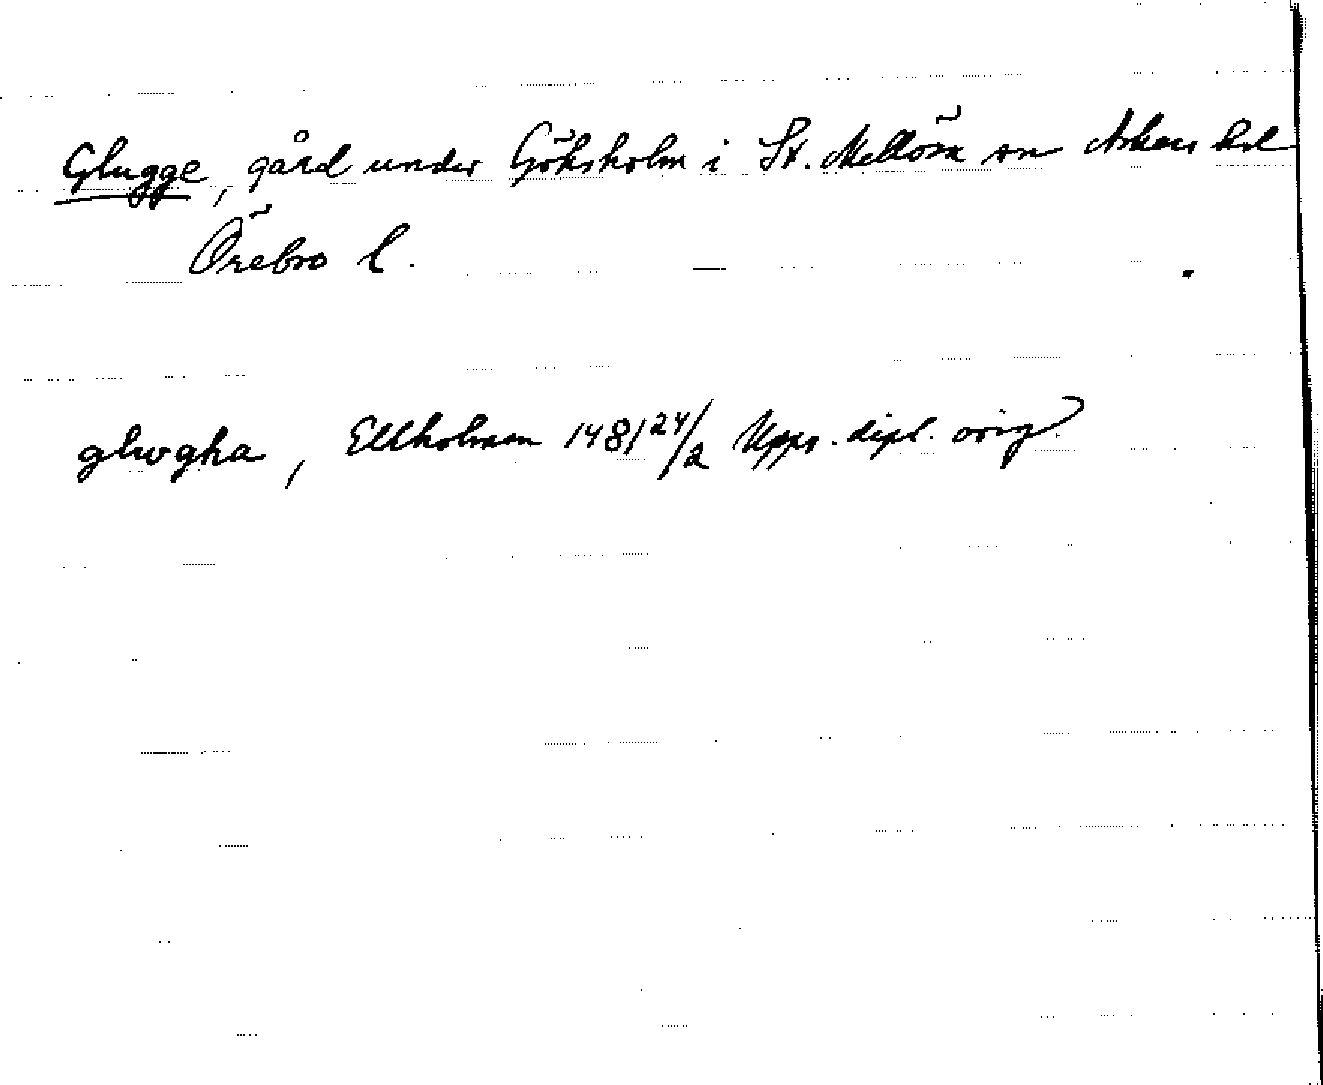 Glugge, gård under Göksholm i St. Mellösa sn Askers hd
Örebro l.
glwgha, Ekholmen 1481 24/2 Upps. dipl. orig.